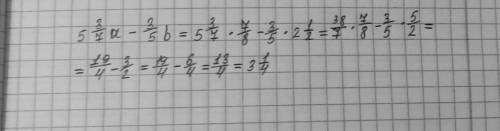 5 3/7 a - 3/5 b = 5 3/7 · 7/8 - 3/5 · 2 1/2 = 38/7 · 7/8 - 3/5 · 5/2 =
= 19/4 - 3/2 = 19/4 - 6/4 = 13/4 = 3 1/4